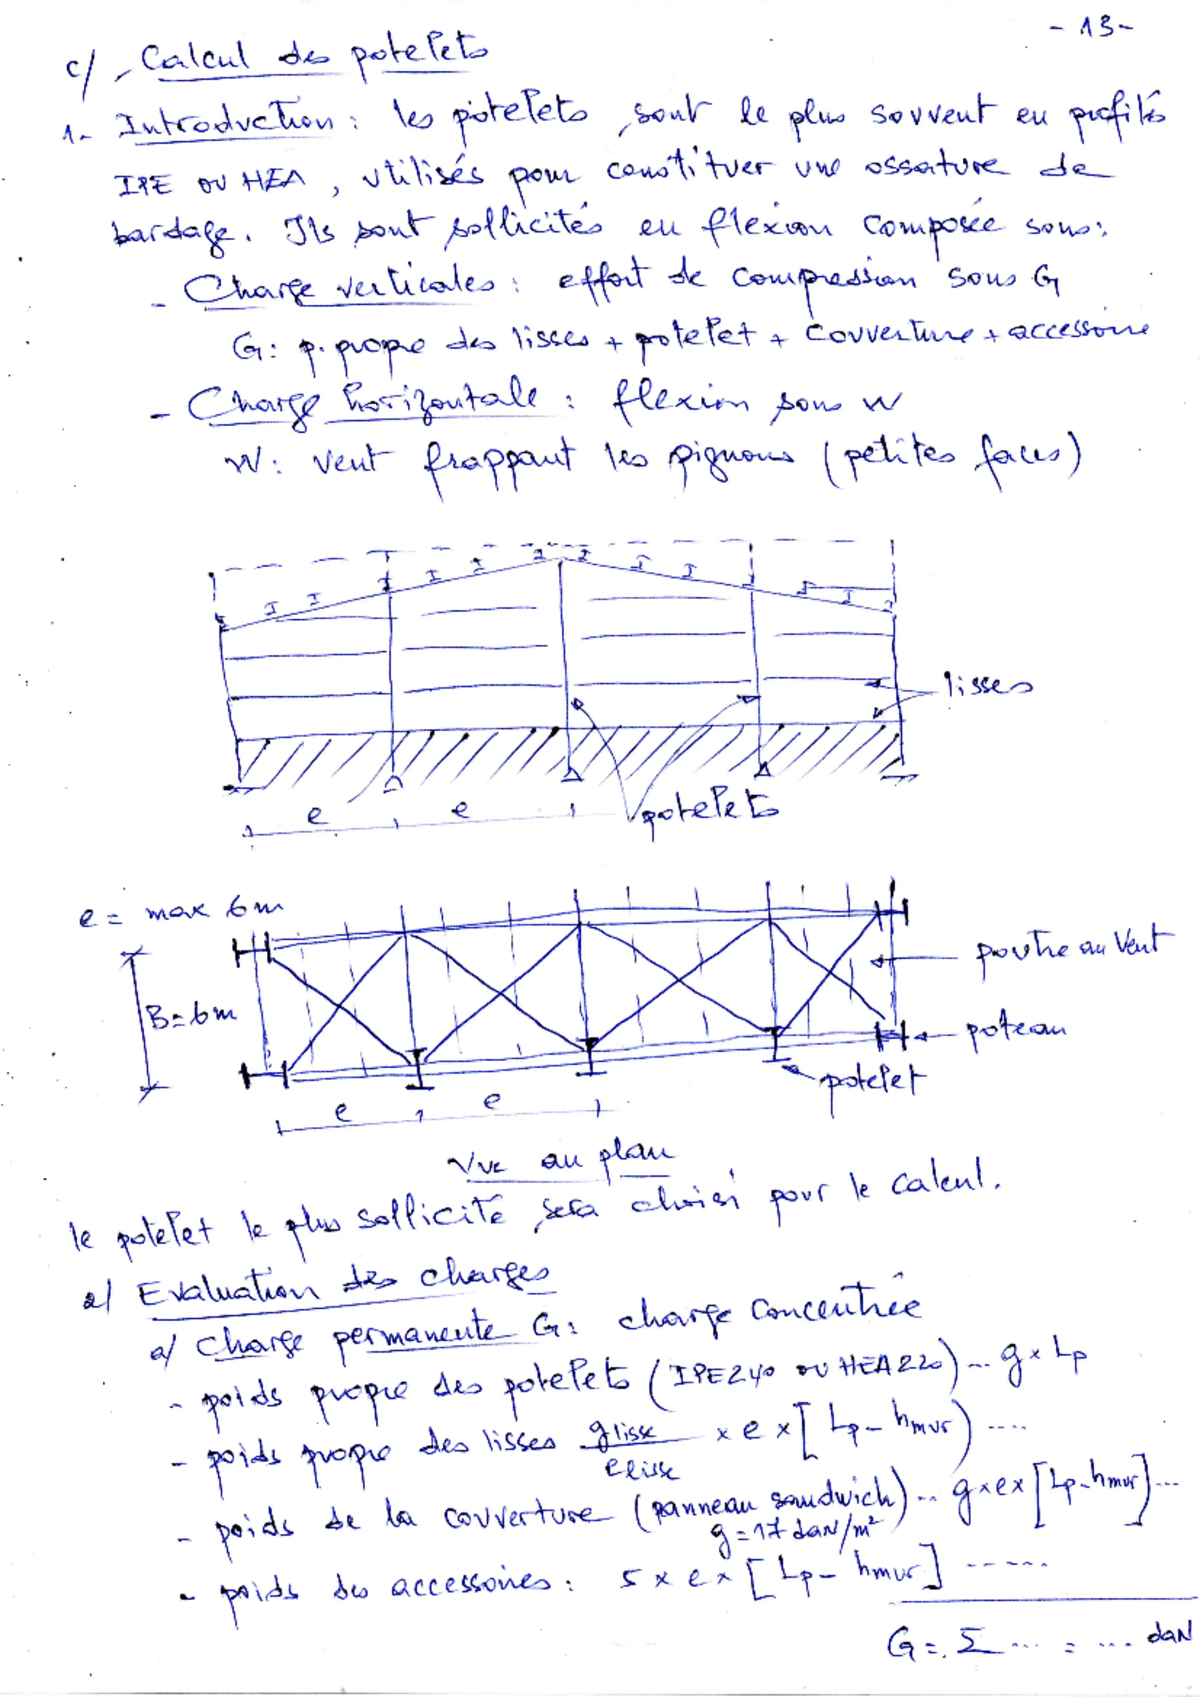 - 13 -
c/, Calcul des potelets
1- Introduction : les potelets, sont le plus souvent en profilés
IPE ou HEA, utilisés pour constituer une ossature de
bardage. Ils sont sollicités en flexion composée sous:
- Charge verticales : effort de compression sous G
G: p. propre des lisses + potelet + couverture + accessoire
- Charge horizontale : flexion sous W
W: vent frappant les pignons (petites faces)
lisses
e e
potelets
e = max 6m
poutre au vent
B=6m
poteau
potelet
e e
Vue au plan
le potelet le plus sollicité sera choisi pour le calcul.
2/ Evaluation des charges
a/ Charge permanente G: charge concentrée
- poids propre des potelets (IPE240 ou HEA220)... g x Lp
- poids propre des lisses glisse/elisse x e x [Lp - hmur) ....
- poids de la couverture (panneau sandwich).. g x e x [Lp-hmur]...
g=17 daN/m²
- poids des accessoires : 5 x e x [Lp - hmur] ......
G = Σ ... = ... daN